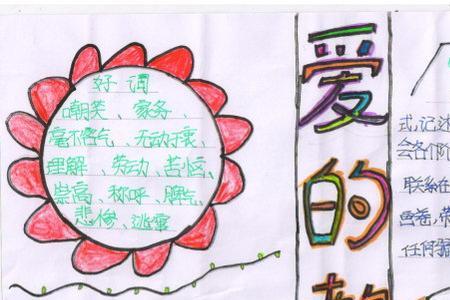 好词
嘲笑、家务、
毫不客气、无动于衷、
理解、劳动、苦恼、
崇高、称呼、脾气、
悲惨、逃窜
爱的
式,记述
会各个阶
联系在
画卷,带
任何猛